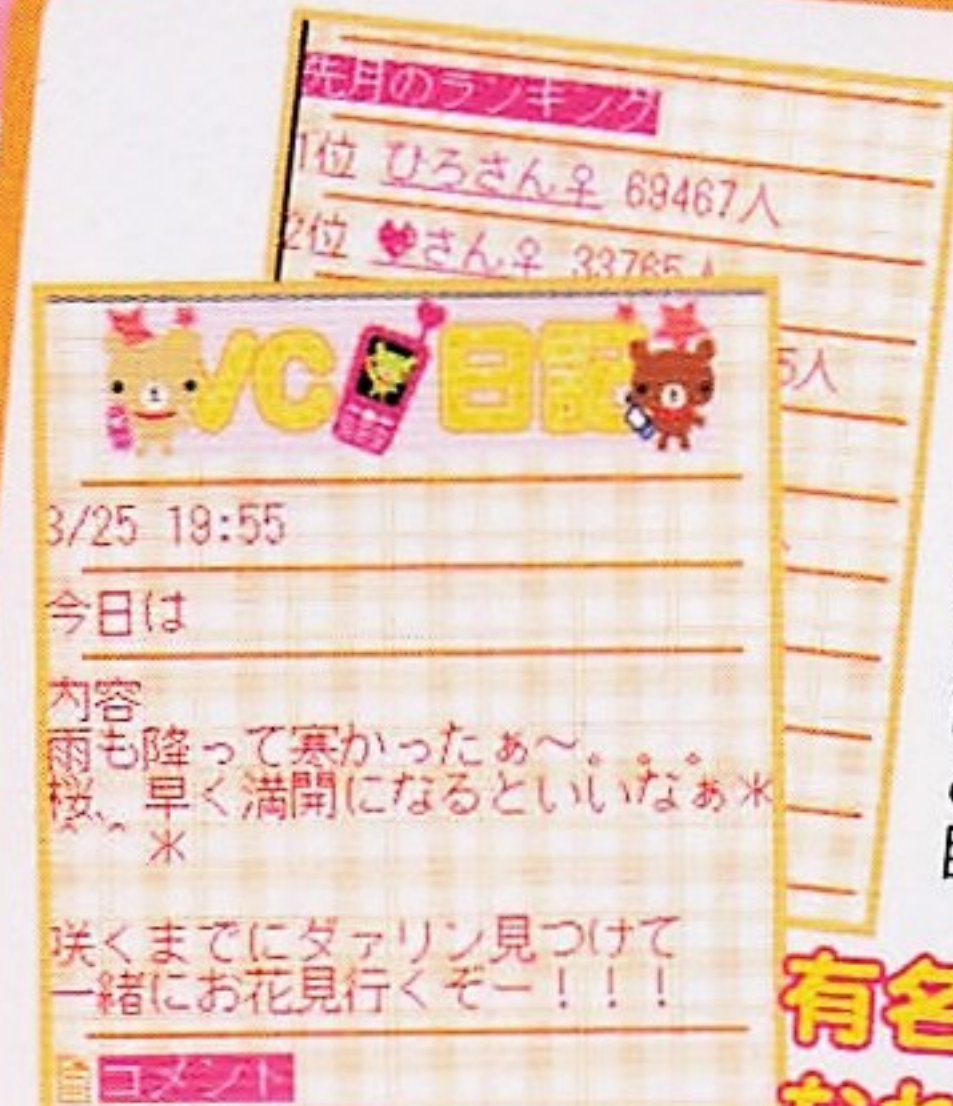 先月のランキング
1位 ひろさん♀ 69467人
2位 ♥さん♀ 33765人
5人
VC日記
3/25 19:55
今日は
内容
雨も降って寒かったぁ～。。。
桜、早く満開になるといいなぁ＊
^ ^ ＊
咲くまでにダァリン見つけて
一緒にお花見行くぞー！！！
コメント
有名